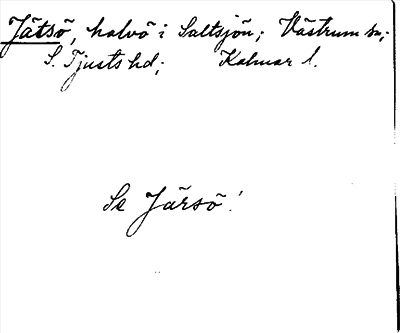 Jätsö, halvö i Saltsjön; Västrum sn;
S. Tjusts hd; Kalmar l.
Se Järsö!